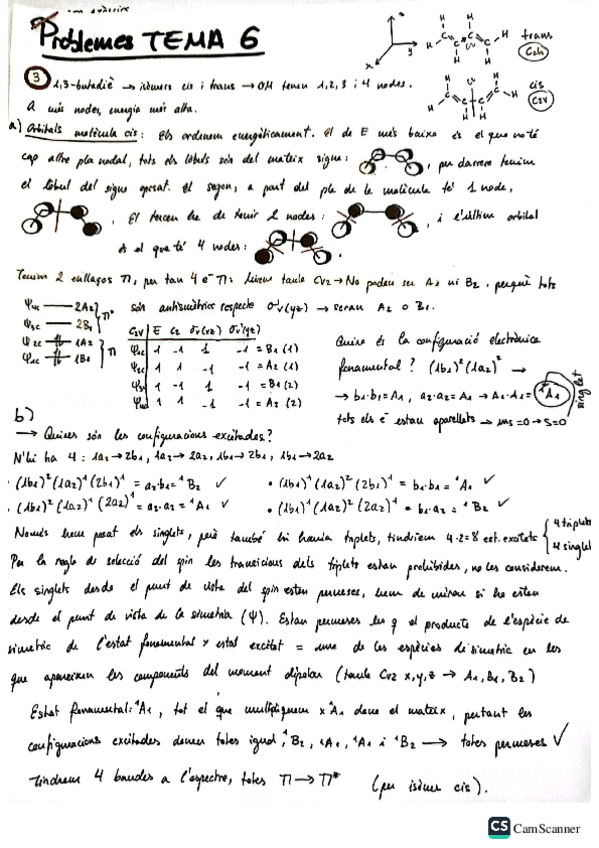 Problemes TEMA 6
trans
C2h
cis
C2V
3 1,3-butadiè → isòmers cis i trans → OM tenen 1,2,3 i 4 nodes.
A més nodes, energia més alta.
a) Orbitals molècula cis: Els ordenem energèticament. El de E més baixa és el que no té
cap altre pla nodal, tots els lòbuls són del mateix signe: , per darrere tenim
el lòbul del signe oposat. El segon, a part del pla de la molècula té 1 node,
. El tercer ha de tenir 2 nodes: , i l'últim orbital
és el que té 4 nodes: .
Tenim 2 enllaços π, per tan 4 e⁻ π: mirem taula C2V → No poden ser A1 ni B2, perquè tots
són antisimètrics respecte σv(yz) → seran A2 o B1.
Ψ4c 2A2
Ψ3c 2B1
π*
Ψ2c 1A2
Ψ1c 1B1
π
C2V E C2 σv(xz) σv'(yz)
Ψ1c 1 -1 1 -1 = B1 (1)
Ψ2c 1 1 -1 -1 = A2 (1)
Ψ3c 1 -1 1 -1 = B1 (2)
Ψ4c 1 1 -1 -1 = A2 (2)
Quina és la configuració electrònica
fonamental? (1b1)² (1a2)² →
→ b1·b1 = A1, a2·a2 = A1 → A1·A1 = ¹A1
singlet
tots els e⁻ estan aparellats → ms=0 → S=0
b)
→ Quines són les configuracions excitades?
N'hi ha 4: 1a2 → 2b1, 1a2 → 2a2, 1b1 → 2b1, 1b1 → 2a2
· (1b1)² (1a2)¹ (2b1)¹ = a2·b1 = ¹B2 ✓
· (1b1)¹ (1a2)² (2b1)¹ = b1·b1 = ¹A1 ✓
· (1b1)² (1a2)¹ (2a2)¹ = a2·a2 = ¹A1 ✓
· (1b1)¹ (1a2)² (2a2)¹ = b1·a2 = ¹B2 ✓
Només hem posat els singlets, però també hi hauria triplets, tindríem 4·2=8 est. excitats
4 triplets
4 singlets
Per la regla de selecció del spin les transicions dels triplets estan prohibides, no les considerem.
Els singlets desde el punt de vista del spin estan permeses, hem de mirar si ho estan
desde el punt de vista de la simetria (Ψ). Estan permeses les q el producte de l'espècie de
simetria de l'estat fonamental x estat excitat = una de les espècies de simetria en les
que apareixen les components del moment dipolar (taula C2V x,y,z → A1, B1, B2)
Estat fonamental: ¹A1, tot el que multipliquem x ¹A1 dona el mateix, pertant les
configuracions excitades donen totes igual, ¹B2, ¹A1, ¹A1 i ¹B2 → totes permeses ✓
Tindrem 4 bandes a l'espectre, totes π → π* (per isòmer cis).
CS CamScanner